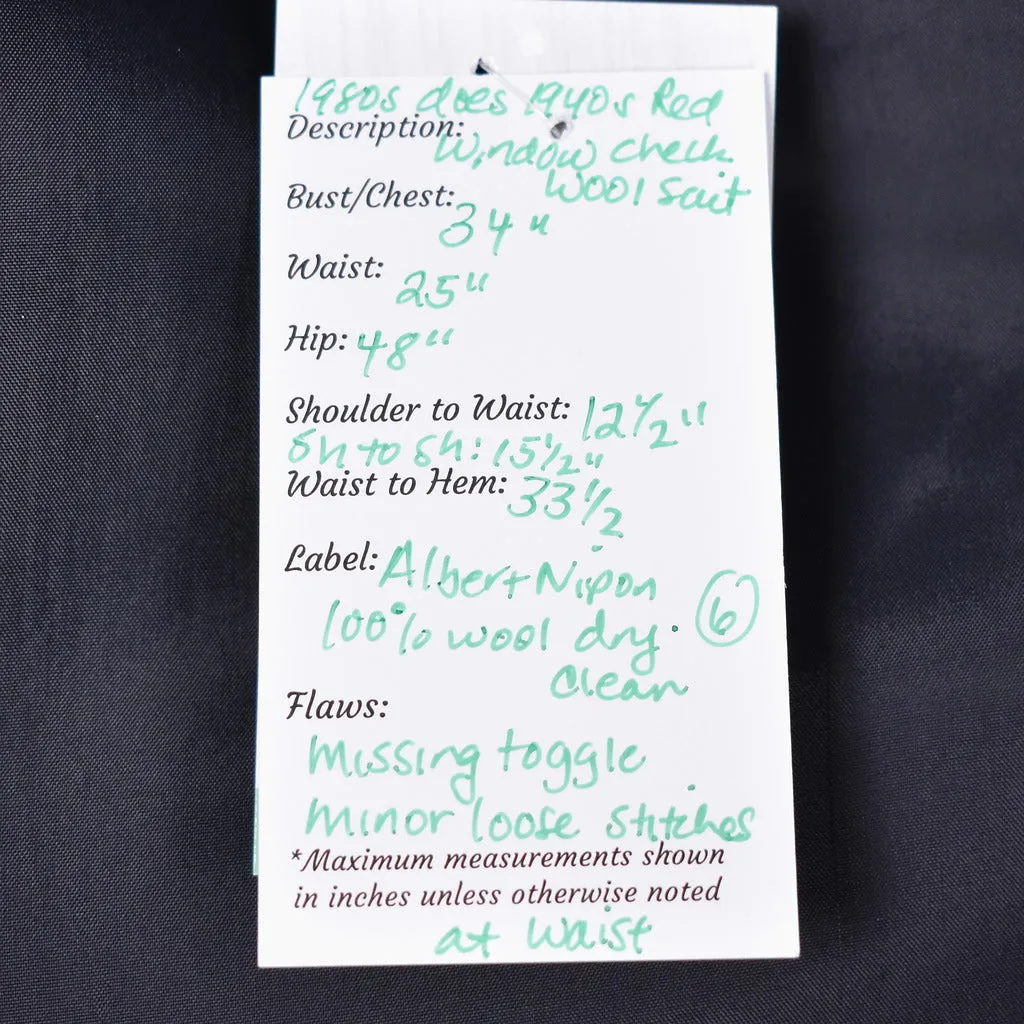 1980s does 1940s Red
Description:
Window check
Wool Suit
Bust/Chest:
34"
Waist:
25"
Hip: 48"
Shoulder to Waist: 12 1/2"
Sh to Sh: 15 1/2"
Waist to Hem: 33 1/2
Label: Albert Nipon
100% wool dry. 6
Clean
Flaws:
Missing toggle
minor loose stitches
*Maximum measurements shown
in inches unless otherwise noted
at waist